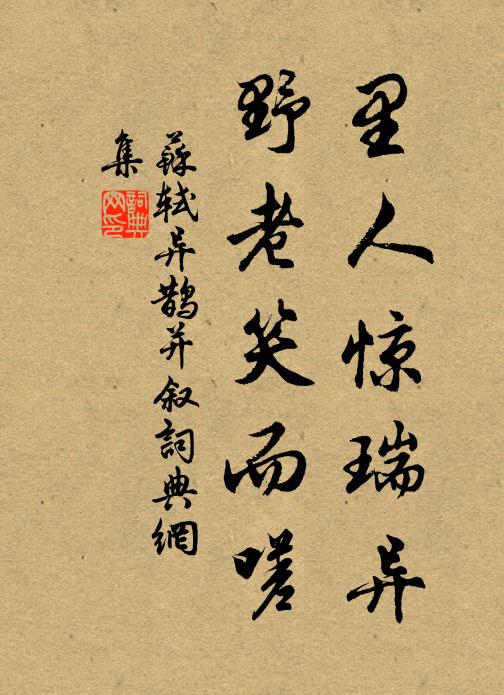 里人惊瑞异
野老笑而嗟
蘇轼异鹊并叙詞典網
集
詞典網印